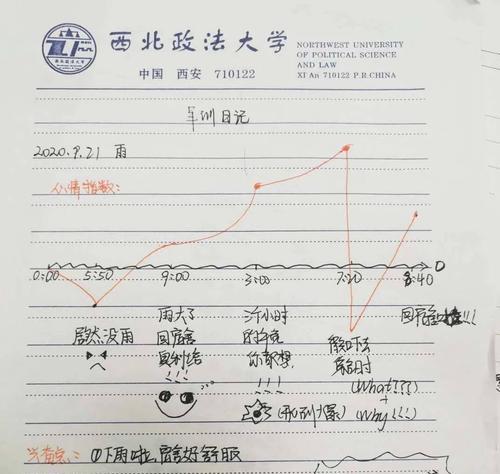 西北政法大学
NORTHWEST UNIVERSITY
OF POLITICAL SCIENCE
AND LAW
中国 西安 710122
XI An 710122 P.R.CHINA
西北政法大学
军训日记
2020.9.21 雨
心情指数:
0:00 5:50 9:00 3:00 7:20 8:40
居然没雨
雨大了
回宿舍
!!!
小时
你敢想
!!!
(What???)
+
(Why!!!)
回宿舍!!!
①下雨啦,宿舍好舒服